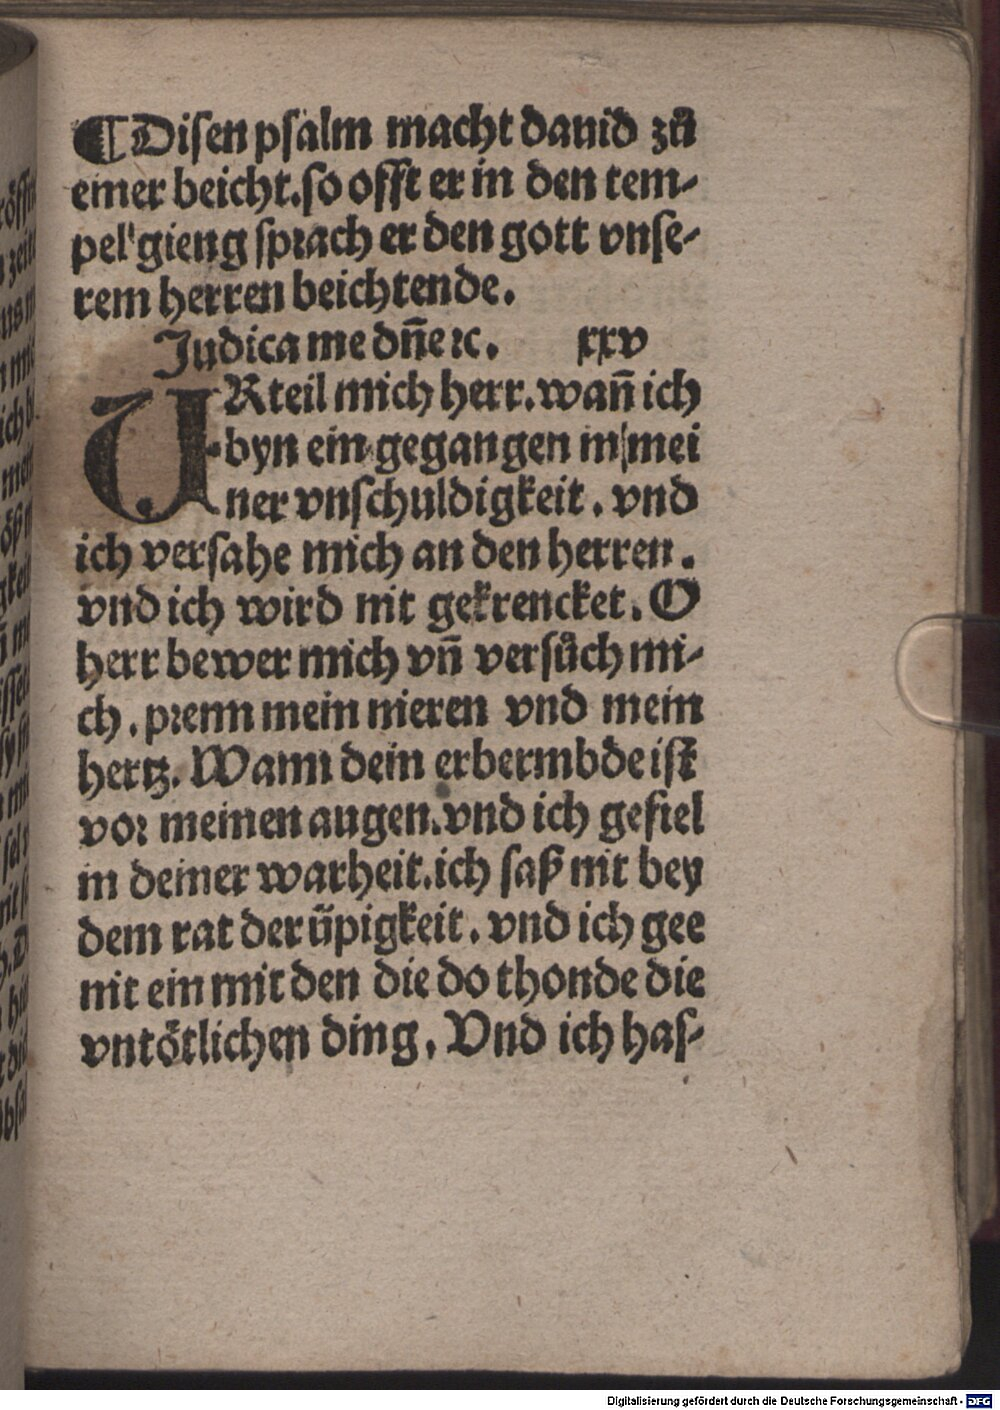 ¶Disen psalm macht dauid zů
einer beicht.so offt er in den tem-
pel gieng sprach er den gott vnse-
rem herren beichtende.
Judica me dñe ꝛc. xxv
URteil mich herr.wañ ich
byn ein gegangen in mei
ner vnschuldigkeit. vnd
ich versahe mich an den herren.
vnd ich wird nit gekrencket. O
herr bewer mich vñ versůch mi-
ch. prenn mein nieren vnd mein
hertz. Wann dein erbermbde ist
vor meinen augen.vnd ich gefiel
in deiner warheit.ich saß nit bey
dem rat der üpigkeit. vnd ich gee
nit ein mit den die do thonde die
vntötlichen ding. Vnd ich has-
Digitalisierung gefördert durch die Deutsche Forschungsgemeinschaft - DFG